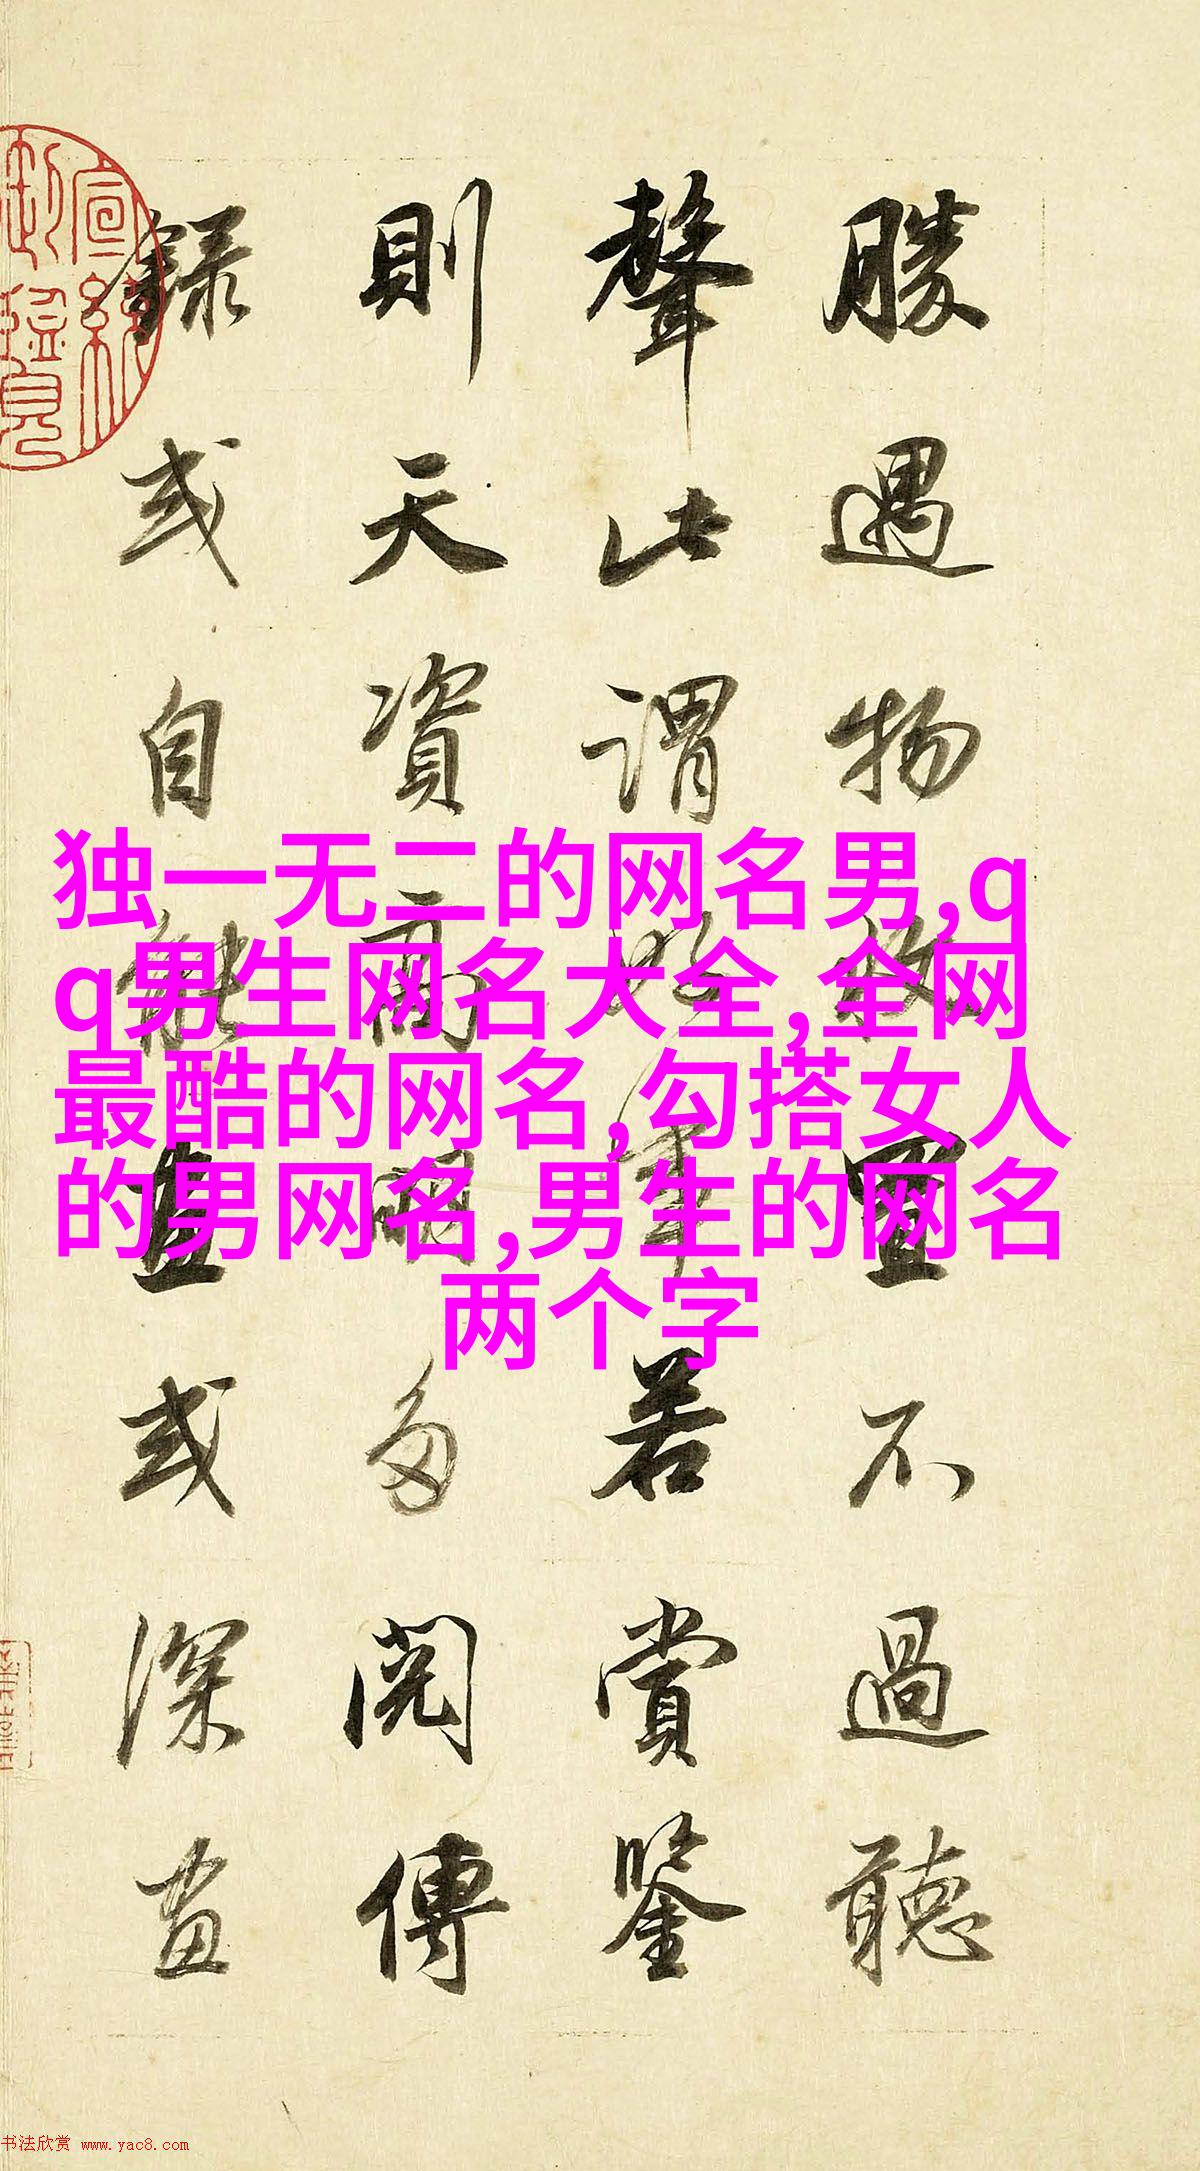 勝遇物收置不過聽
聲此謂好事若賞鑒
則天資高明多閱傳
録或自能畫或深畫
独一无二的网名男,q
q男生网名大全,全网
最酷的网名,勾搭女人
的男网名,男生的网名
两个字
书法欣赏 www.yac8.com